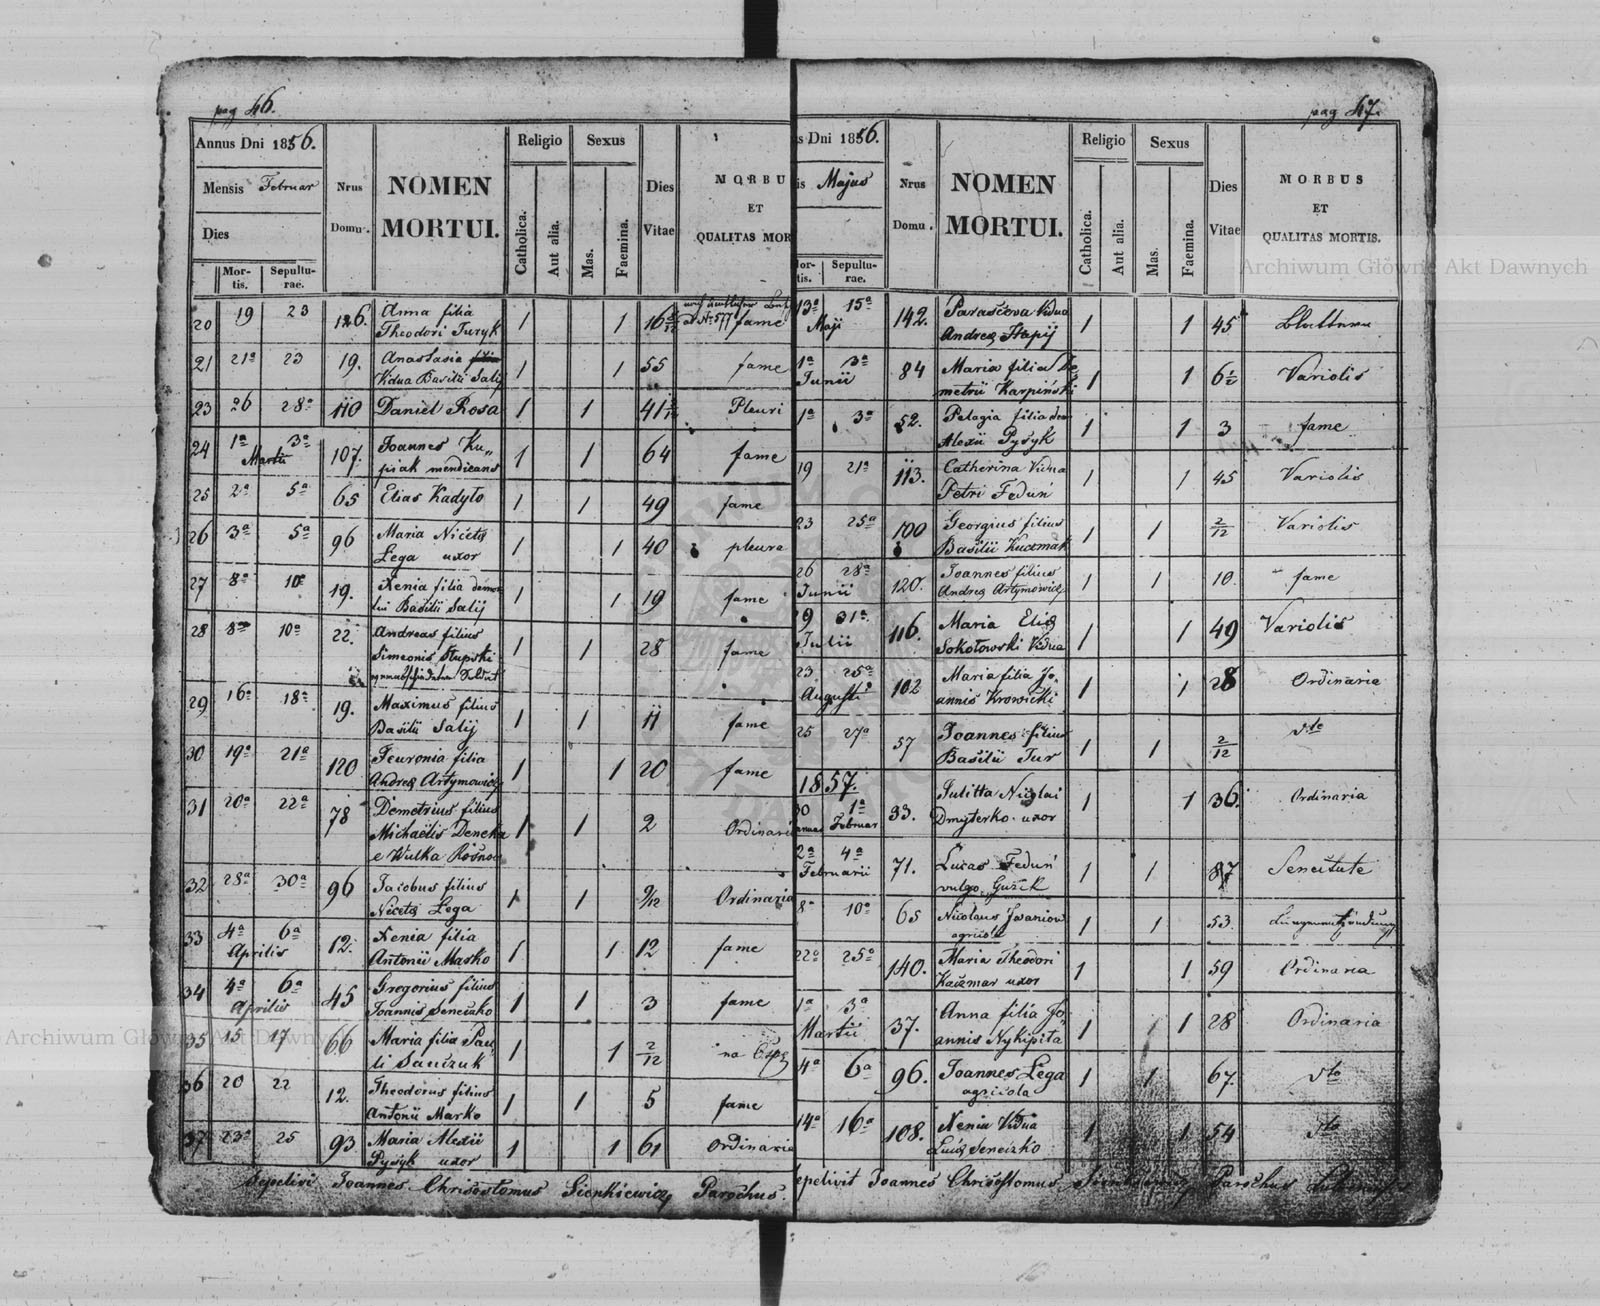 pag 46.
Annus Dni 1856.
Mensis Februar
Dies
Mor-
tis.
Sepultu-
rae.
Nrus
Domu.
NOMEN
MORTUI.
Religio
Catholica.
Aut alia.
Sexus
Mas.
Faemina.
Dies
Vitae
MORBU
ET
QUALITAS MOR
20 19 23 126. Anna filia
Theodori Turyk 1 1 16 fame
21 21a 23 19. Anastasia filia
Vidua Basilii Salij 1 1 55 fame
23 26 28a 110 Daniel Rosa 1 1 41 Pleuri
24 1a 3a
Martii 107. Joannes Ku„
piak mendicans 1 1 64 fame
25 2a 5a 65 Elias Kadyło 1 1 49 fame
26 3a 5a 96 Maria Nicetę
Lega uxor 1 1 40 pleura
27 8a 10a 19. Xenia filia
Basilii Salij 1 1 19 fame
28 8a 10a 22. Andreas filius
Simeonis Słupski
Soldat 1 1 28 fame
29 16a 18a 19. Maximus filius
Basilii Salij 1 1 11 fame
30 19a 21a 120 Feuronia filia
Andreę Artymowicz 1 1 20 fame
31 20a 22a 78 Demetrius filius
Michaëlis Deneka
e Wulka 1 1 2 Ordinaria
32 28a 30a 96 Jacobus filius
Nicetę Lega 1 1 9/12 Ordinaria
33 4a 6a
Aprilis 12. Xenia filia
Antonii Marko 1 1 12 fame
34 4a 6a
Aprilis 45 Gregorius filius
Joannis Seneczko 1 1 3 fame
35 15 17 66 Maria filia Pau„
li Sawczuk 1 1 2/12 na
36 20 22 12. Theodorus filius
Antonii Marko 1 1 5 fame
37 23a 25 93 Maria Alexii
Pysyk uxor 1 1 61 Ordinaria
Sepelivi Joannes Chrisostomus Sienkiewicz Parochus.
pag 47.
s Dni 1856.
is Majus
Mor-
tis.
Sepultu-
rae.
Nrus
Domu.
NOMEN
MORTUI.
Religio
Catholica.
Aut alia.
Sexus
Mas.
Faemina.
Dies
Vitae
MORBUS
ET
QUALITAS MORTIS.
13a 15a
Maji 142. Parascova Vidua
Andreę Hapij 1 1 45
1a 3a
Junii 84 Maria filia De„
metrii Karpiński 1 1 6 1/2 Variolis
1a 3a 52. Pelagia filia
Alexii Pysyk 1 1 3 fame
19 21a 113. Catherina Vidua
Petri Feduń 1 1 45 Variolis
23 25a 100 Georgius filius
Basilii Kuczmak 1 1 2/12 Variolis
26 28a
Junii 120. Joannes filius
Andreę Artymowicz 1 1 10. fame
29 31a
Julii 116. Maria Elię
Sokołowski Vidua 1 1 49 Variolis
23 25a
Augusti 102 Maria filia Jo„
annis Krowicki 1 1 28 Ordinaria
25 27a 57 Joannes filius
Basilii Tur 1 1 2/12 dto
1857.
30 1a
Februar 33. Julitta Nicolai
Dmyterko uxor 1 1 36. Ordinaria
2a 4a
Februarii 71. Lucas Feduń
vulgo Guzik 1 1 87 Senectute
8a 10a 65 Nicolaus Iwaniow
agricola 1 1 53. Lungenentzündung
22a 25a 140. Maria Theodori
Kaczmar uxor 1 1 59 Ordinaria
1a 3a
Martii 37. Anna filia Jo„
annis Nykipiła 1 1 28 Ordinaria
4a 6a 96. Joannes Lega
agricola 1 1 67. dto
14a 16a 108. Xenia Vidua
Lucę Seneczko 1 1 54 dto
epelivit Joannes Chrisostomus Sienkiewicz Parochus
Archiwum Główne Akt Dawnych
Archiwum Główne Akt Dawnych